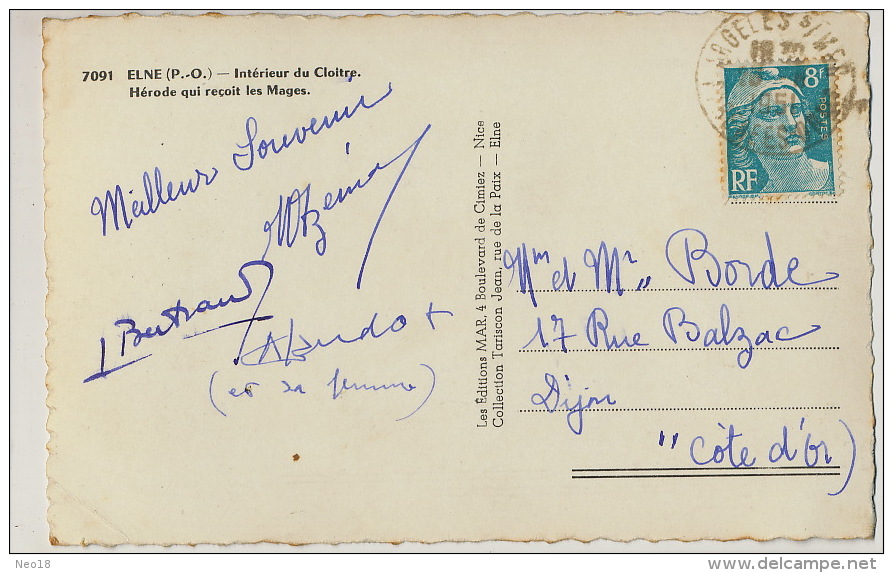 7091 ELNE (P.-O.) — Intérieur du Cloitre.
Hérode qui reçoit les Mages.
Meilleur Souvenir
Bertrand
(et sa femme)
Les Éditions MAR, 4 Boulevard de Cimiez — Nice
Collection Tariscon Jean, rue de la Paix — Elne
ARGELES S/MER
18 30
8F
POSTES
RF
Mm et Mr Borde
17 Rue Balzac
Dijon
"Côte d'Or)
Neo18
delcampe.net